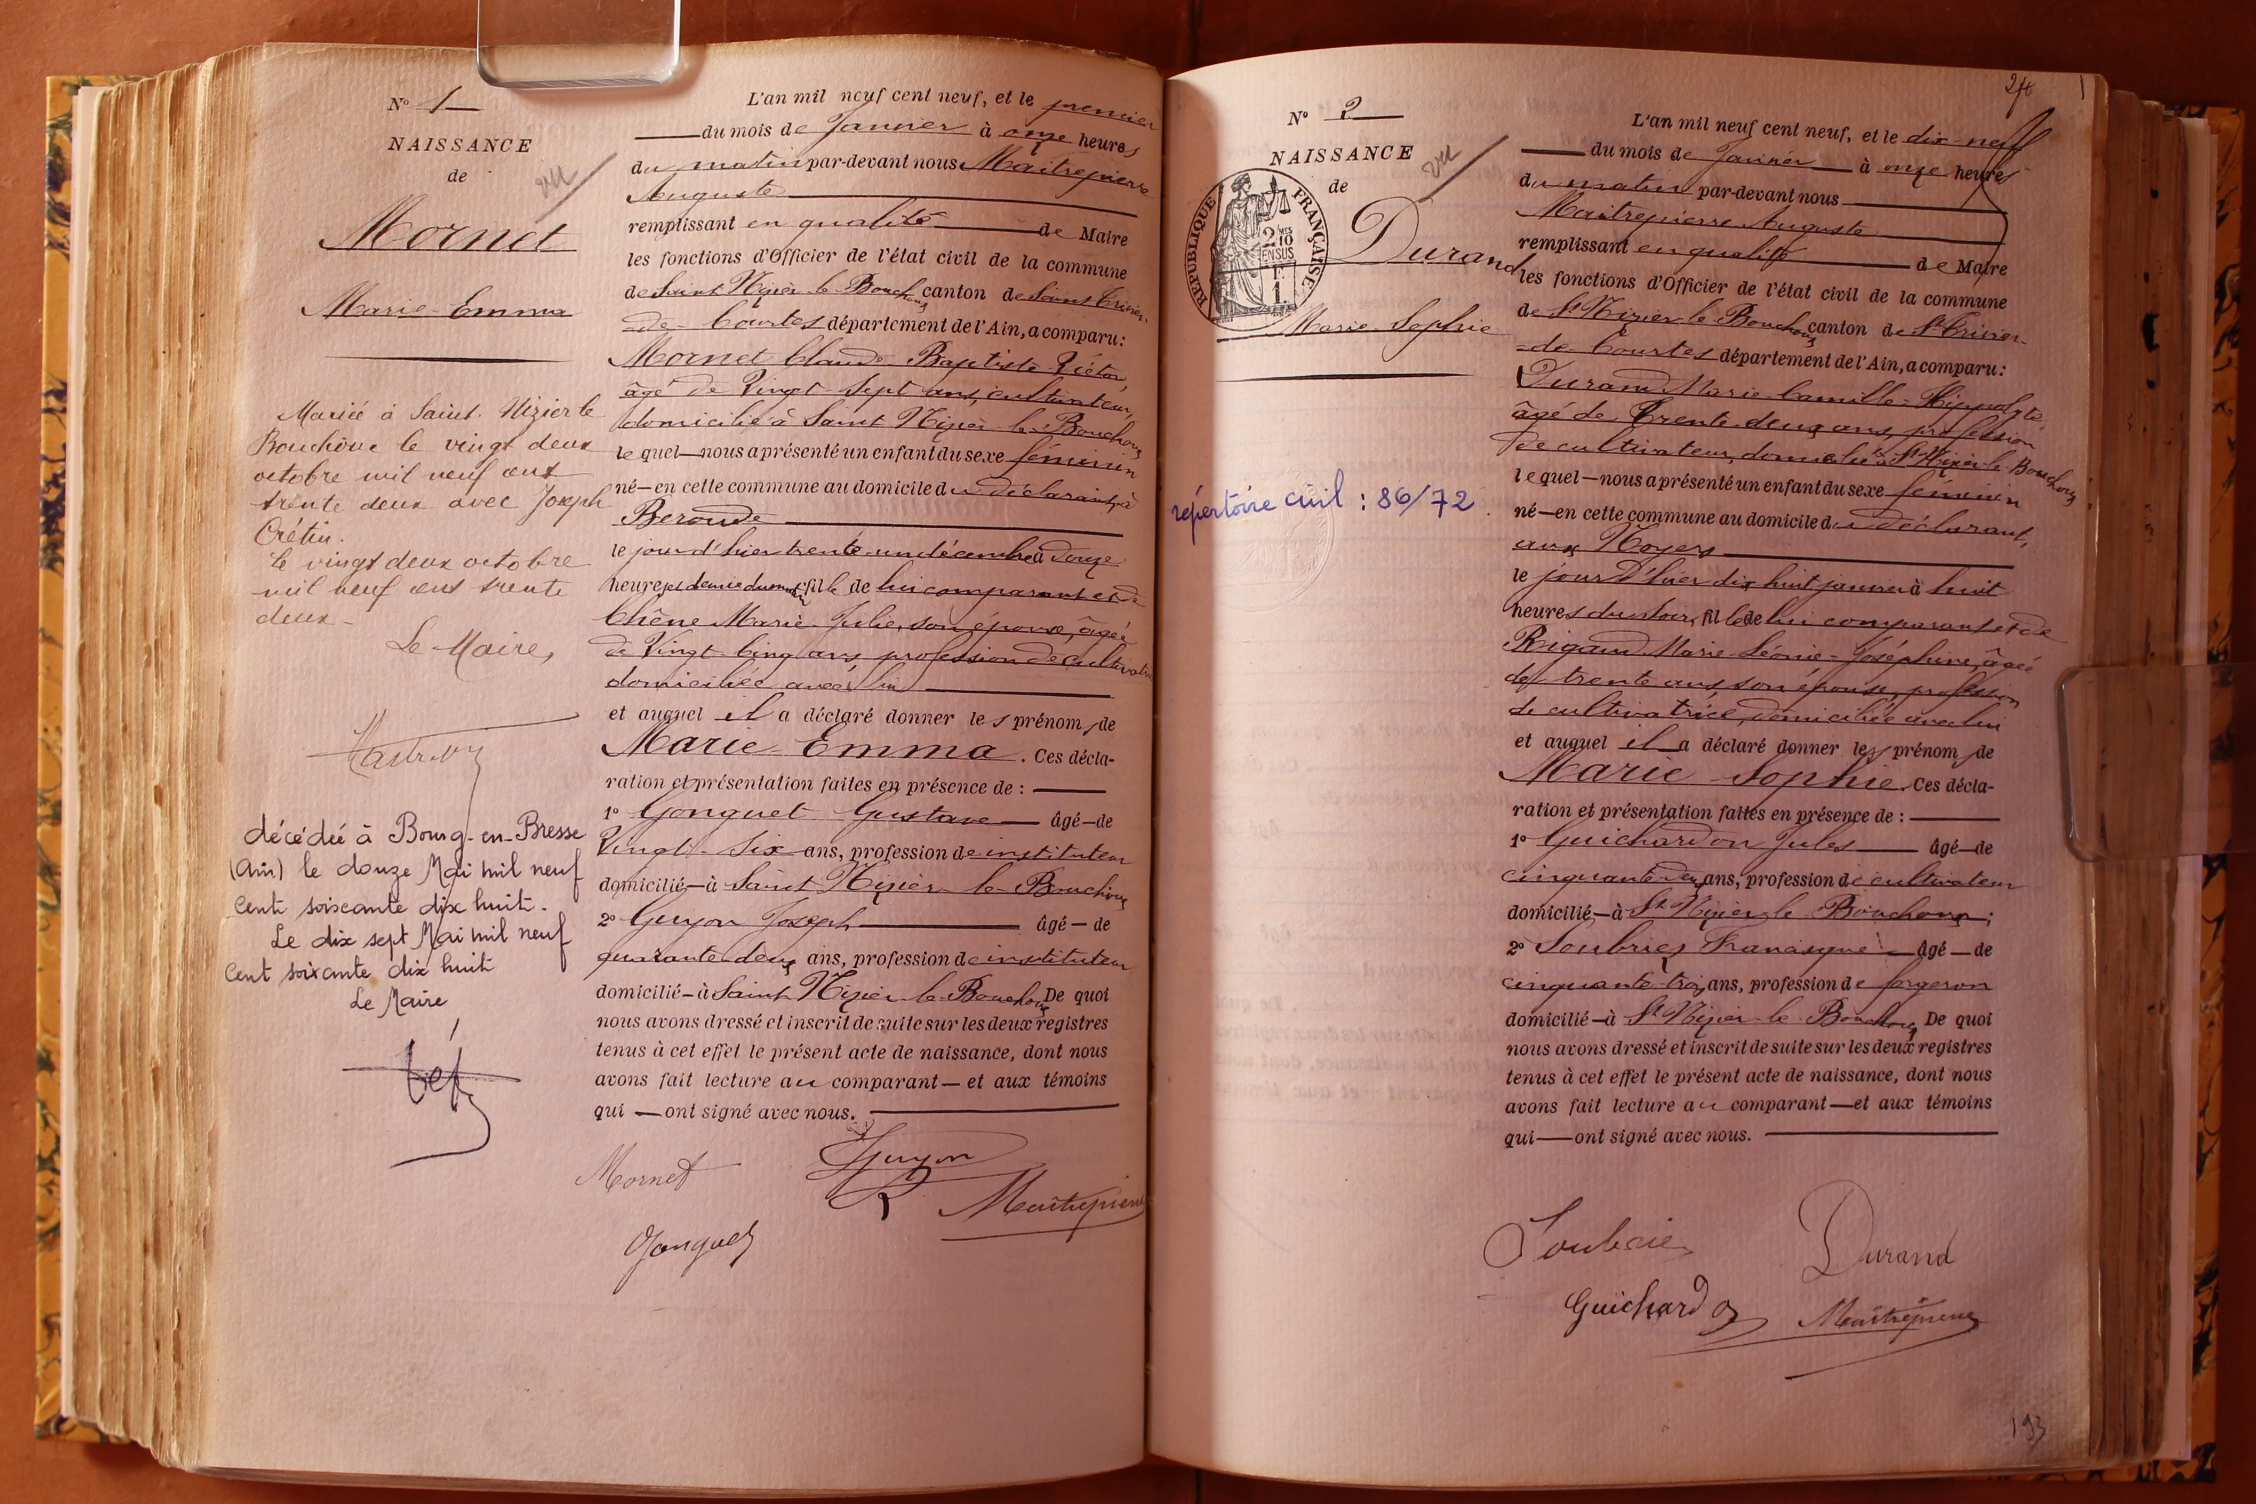 N° 1
NAISSANCE
de
vu
Mornet
Marie-Emma
Mariée à Saint-Nizier le
Bouchoux le vingt deux
octobre mil neuf cent
trente deux avec Joseph
Crétin.
Le vingt deux octobre
mil neuf cent trente
deux -
Le Maire,
décédée à Bourg-en-Bresse
(Ain) le douze Mai mil neuf
cent soixante dix huit.
Le dix sept Mai mil neuf
cent soixante dix huit
Le Maire
L'an mil neuf cent neuf, et le premier
du mois de Janvier à onze heures
du matin par-devant nous Maitrepierre
Auguste
remplissant en qualité de Maire
les fonctions d'Officier de l'état civil de la commune
de Saint Nizier-le-Bouchoux canton de Saint Trivier-
-de-Courtes département de l'Ain, a comparu:
Mornet Claude-Baptiste-Victor,
âgé de Vingt-Sept ans, cultivateur,
domicilié à Saint Nizier-le-Bouchoux
lequel nous a présenté un enfant du sexe féminin
né en cette commune au domicile du déclarant, à
Beroude
le jour d'hier trente-un décembre à douze
heures et demie du matin, fille de lui comparant et de
Chêne Marie-Julie, son épouse, âgée
de Vingt Cinq ans, profession de cultivatrice
domiciliée avec lui
et auquel il a déclaré donner les prénoms de
Marie-Emma. Ces décla-
ration et présentation faites en présence de :
1° Gonguet Gustave âgé de
Vingt-Six ans, profession de instituteur
domicilié à Saint Nizier-le-Bouchoux
2° Guyon Joseph âgé de
quarante-deux ans, profession de instituteur
domicilié à Saint Nizier-le-Bouchoux De quoi
nous avons dressé et inscrit de suite sur les deux registres
tenus à cet effet le présent acte de naissance, dont nous
avons fait lecture au comparant et aux témoins
qui ont signé avec nous.
Mornet
Guyon
Maitrepierre
Gonguet
24
N° 2
NAISSANCE
de
vu
RÉPUBLIQUE FRANÇAISE
2 MES
10
EN SUS
1 F.
Durand
Marie Sophie
répertoire civil : 86/72
L'an mil neuf cent neuf, et le dix-neuf
du mois de Janvier à onze heures
du matin par-devant nous
Maitrepierre Auguste
remplissant en qualité de Maire
les fonctions d'Officier de l'état civil de la commune
de St Nizier-le-Bouchoux canton de St Trivier-
-de-Courtes département de l'Ain, a comparu:
Durand Marie-Camille-Hippolyte
âgé de Trente-deux ans, profession
de cultivateur, domicilié à St Nizier-le-Bouchoux
lequel nous a présenté un enfant du sexe féminin
né en cette commune au domicile du déclarant,
aux Noyers
le jour d'hier dix huit janvier à huit
heures du soir, fille de lui comparant et de
Rigaud Marie-Léonie-Joséphine, âgée
de trente ans, son épouse, profession
de cultivatrice, domiciliée avec lui
et auquel il a déclaré donner les prénoms de
Marie-Sophie. Ces décla-
ration et présentation faites en présence de :
1° Guichardon Jules âgé de
cinquante-deux ans, profession de cultivateur
domicilié à St Nizier-le Bouchoux ;
2° Soubries Francisque âgé de
cinquante-trois ans, profession de forgeron
domicilié à St Nizier-le-Bouchoux De quoi
nous avons dressé et inscrit de suite sur les deux registres
tenus à cet effet le présent acte de naissance, dont nous
avons fait lecture au comparant et aux témoins
qui ont signé avec nous.
Durand
Guichardon
Maitrepierre
193